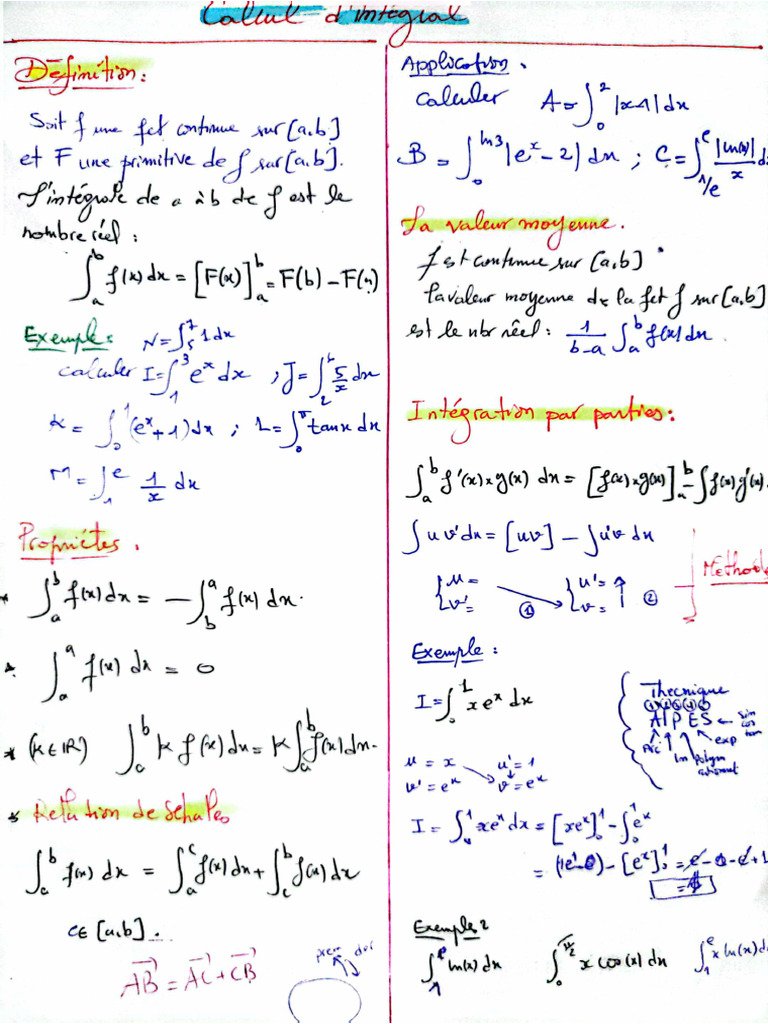 Calcul d'intégral
Définition:
Soit f une fct continue sur [a,b]
et F une primitive de f sur [a,b].
L'intégrale de a à b de f est le
nombre réel :
∫_a^b f(x) dx = [F(x)]_a^b = F(b) - F(a)
Exemple: N = ∫_5^7 1 dx
calculer I = ∫_1^3 e^x dx ; J = ∫_2^6 5/x dx
K = ∫_0^1 (e^x + 1) dx ; L = ∫_0^π tan x dx
M = ∫_1^e 1/x dx
Propriétes.
* ∫_a^b f(x) dx = - ∫_b^a f(x) dx.
* ∫_a^a f(x) dx = 0
* (k ∈ IR) ∫_a^b k f(x) dx = k ∫_a^b f(x) dx.
* Relation de Schales
∫_a^b f(x) dx = ∫_a^c f(x) dx + ∫_c^b f(x) dx
c ∈ [a,b].
AB = AC + CB
Application.
calculer A = ∫_0^2 |x-1| dx
B = ∫_0^{ln 3} |e^x - 2| dx ; C = ∫_{1/e}^e |ln(x)|/x d
La valeur moyenne.
f est continue sur [a,b]
la valeur moyenne de la fct f sur [a,b]
est le nbr réel : 1/(b-a) ∫_a^b f(x) dx.
Intégration par parties:
∫_a^b f'(x) × g(x) dx = [f(x) × g(x)]_a^b - ∫ f(x) g'(x).
∫ u v' dx = [uv] - ∫ u'v dx
Methode
{ u = { u' =
{ v' = ① { v = ②
Exemple :
I = ∫_0^1 x e^x dx
Thecnique
①②③④⑤
AlPES ← sin cos tan
Arc ln polyn exp
u = x u' = 1
v' = e^x v = e^x
I = ∫_0^1 x e^x dx = [x e^x]_0^1 - ∫_0^1 e^x
= (1e^1 - 0) - [e^x]_0^1 = e - 0 - e + 1
= 1
Exemple 2
∫_1^e ln(x) dx ∫_0^{π/2} x cos(x) dx ∫_1^e x ln(x) d